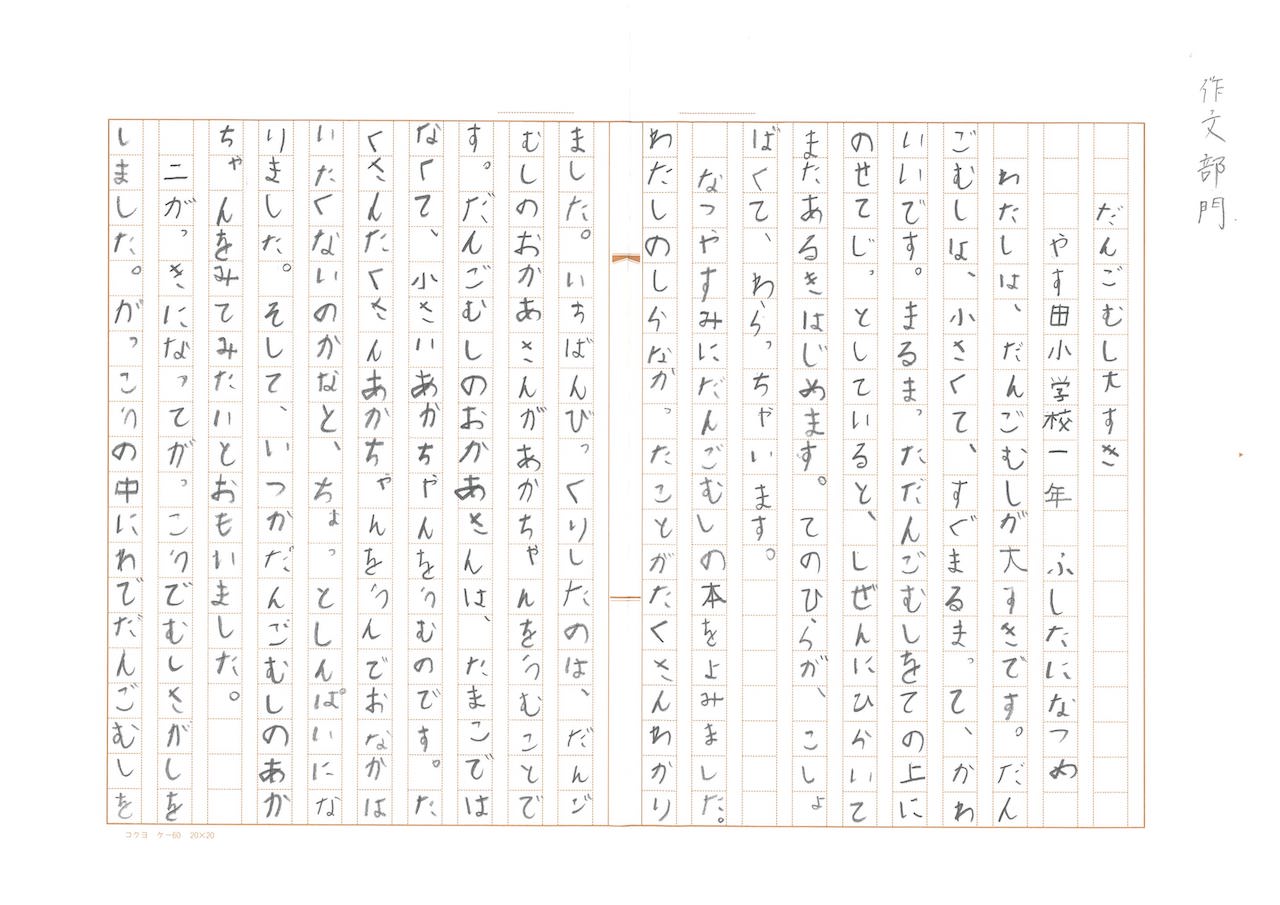 作文部門
だんごむし大すき
やす田小学校一年 ふしたになつめ
わたしは、だんごむしが大すきです。だん
ごむしは、小さくて、すぐまるまって、かわ
いいです。まるまっただんごむしをての上に
のせてじっとしていると、しぜんにひらいて
またあるきはじめます。てのひらが、こしょ
ばくて、わらっちゃいます。
なつやすみにだんごむしの本をよみました。
わたしのしらなかったことがたくさんわかり
ました。いちばんびっくりしたのは、だんご
むしのおかあさんがあかちゃんをうむことで
す。だんごむしのおかあさんは、たまごでは
なくて、小さいあかちゃんをうむのです。た
くさんたくさんあかちゃんをうんでおなかは
いたくないのかなと、ちょっとしんぱいにな
りました。そして、いつかだんごむしのあか
ちゃんをみてみたいとおもいました。
二がっきになってがっこうでむしさがしを
しました。がっこうの中にわでだんごむしを
コクヨ ケー60 20×20